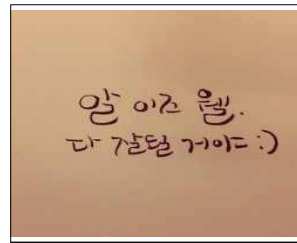 알 이즈 웰.
다 잘될 거야 :)